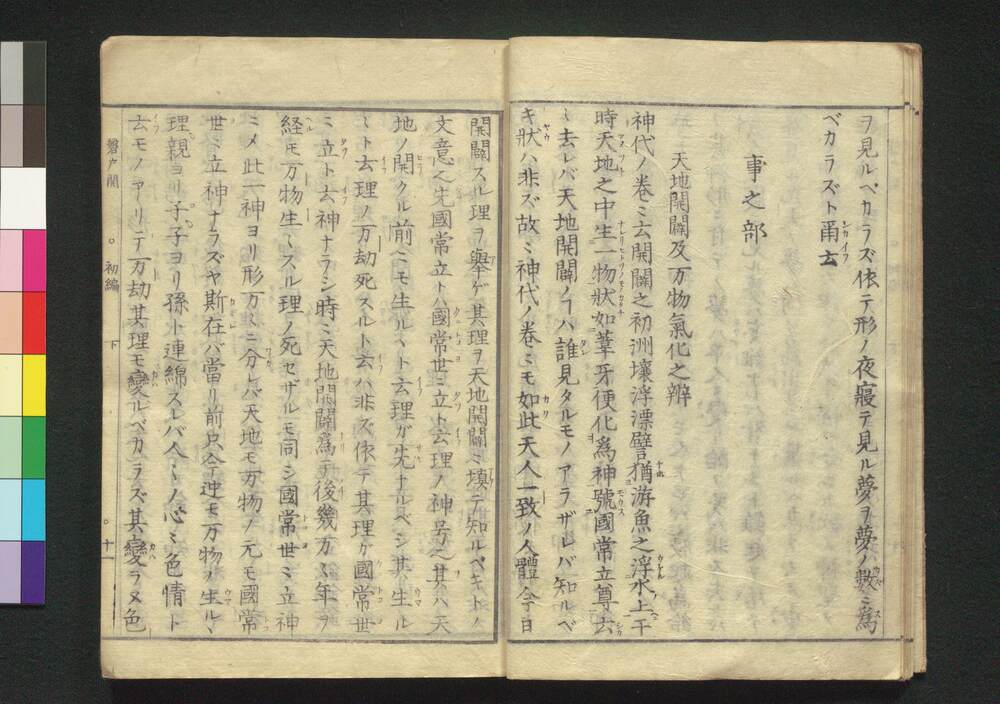 ヲ見ルベカラズ依テ形ノ夜寢テ見ル夢ヲ夢ノ数ミ為
ベカラズト甬云
事之部
天地開闢及万物氣化之辨
神代ノ卷ミ云開闢之初洲壤浮漂譬猶游魚之浮水上于
時天地之中生一物狀如葦牙便化為神號國常立尊云
ミ去レバ天地開闢ノヿハ誰見タルモノアラザレバ知ルベ
キ狀ハ非ズ故ミ神代ノ卷ミモ如此天人一致ノ人體今日
開闢スル理ヲ擧ゲ其理ヲ天地開闢ミ塡テ知ルベキトノ
文意也先國常立ト八國常世ミ立ト云理ノ神号也其八天
地ノ開クル前ミモ生ルヽト云理ガ先ナルベシ其生ル
ヽト云理ノ万劫死スルト云ハ非ズ依テ其理ガ國常世
ミ立ト云神ナラシ時ミ天地開闢為テ後幾万ミ年ヲ
経モ万物生ミスル理ノ死セザルモ同シ國常世ミ立神
ミメ此一神ヨリ形万ミニ分レバ天地モ万物ノ元モ國常
世ミ立神ナラズヤ斯在バ當リ前只今迚モ万物ノ生ルヽ
理親ヨリ子子ヨリ孫ト連綿スレバ人ミノ心ミ色情ト
云モノアリテ万劫其理モ變ルベカラズ其變ラヌ色
磐戸開 ○ 初編 下 ○ 十一